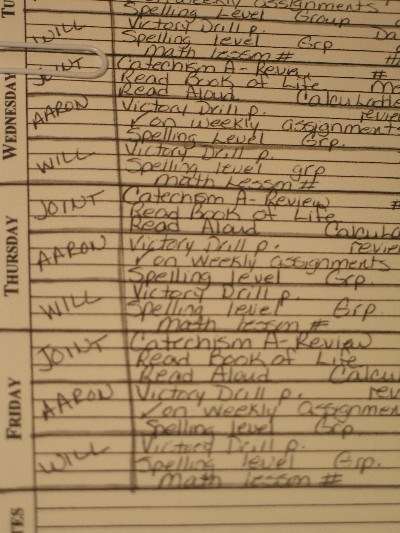 TU
Spelling Level Group
WILL Victory Drill p. Da
Spelling Level Grp
math lesson #
WEDNESDAY
JOINT Catechism A-Review #
Read Book of Life
Read Aloud Calculadde
AARON Victory Drill p. review
✓on weekly assignments
Spelling Level Grp.
WILL Victory Drill p.
Spelling level grp
math Lesson #
THURSDAY
JOINT Catechism A-Review #
Read Book of Life
Read Aloud Calcula
AARON Victory Drill p. review
✓on weekly assignments
Spelling level Grp.
WILL Victory Drill p.
Spelling level Grp.
math lesson #
FRIDAY
JOINT Catechism A-Review
Read Book of Life
Read Aloud Calcu
AARON Victory Drill p. rev
✓on weekly assignmen
Spelling level Grp
WILL Victory Drill p.
Spelling level Grp.
math lesson #
TES